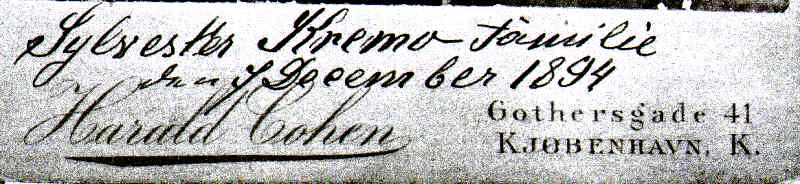 Sylvester Kremo Familie
den 7 December 1894
Harald Cohen
Gothersgade 41
KJØBENHAVN, K.